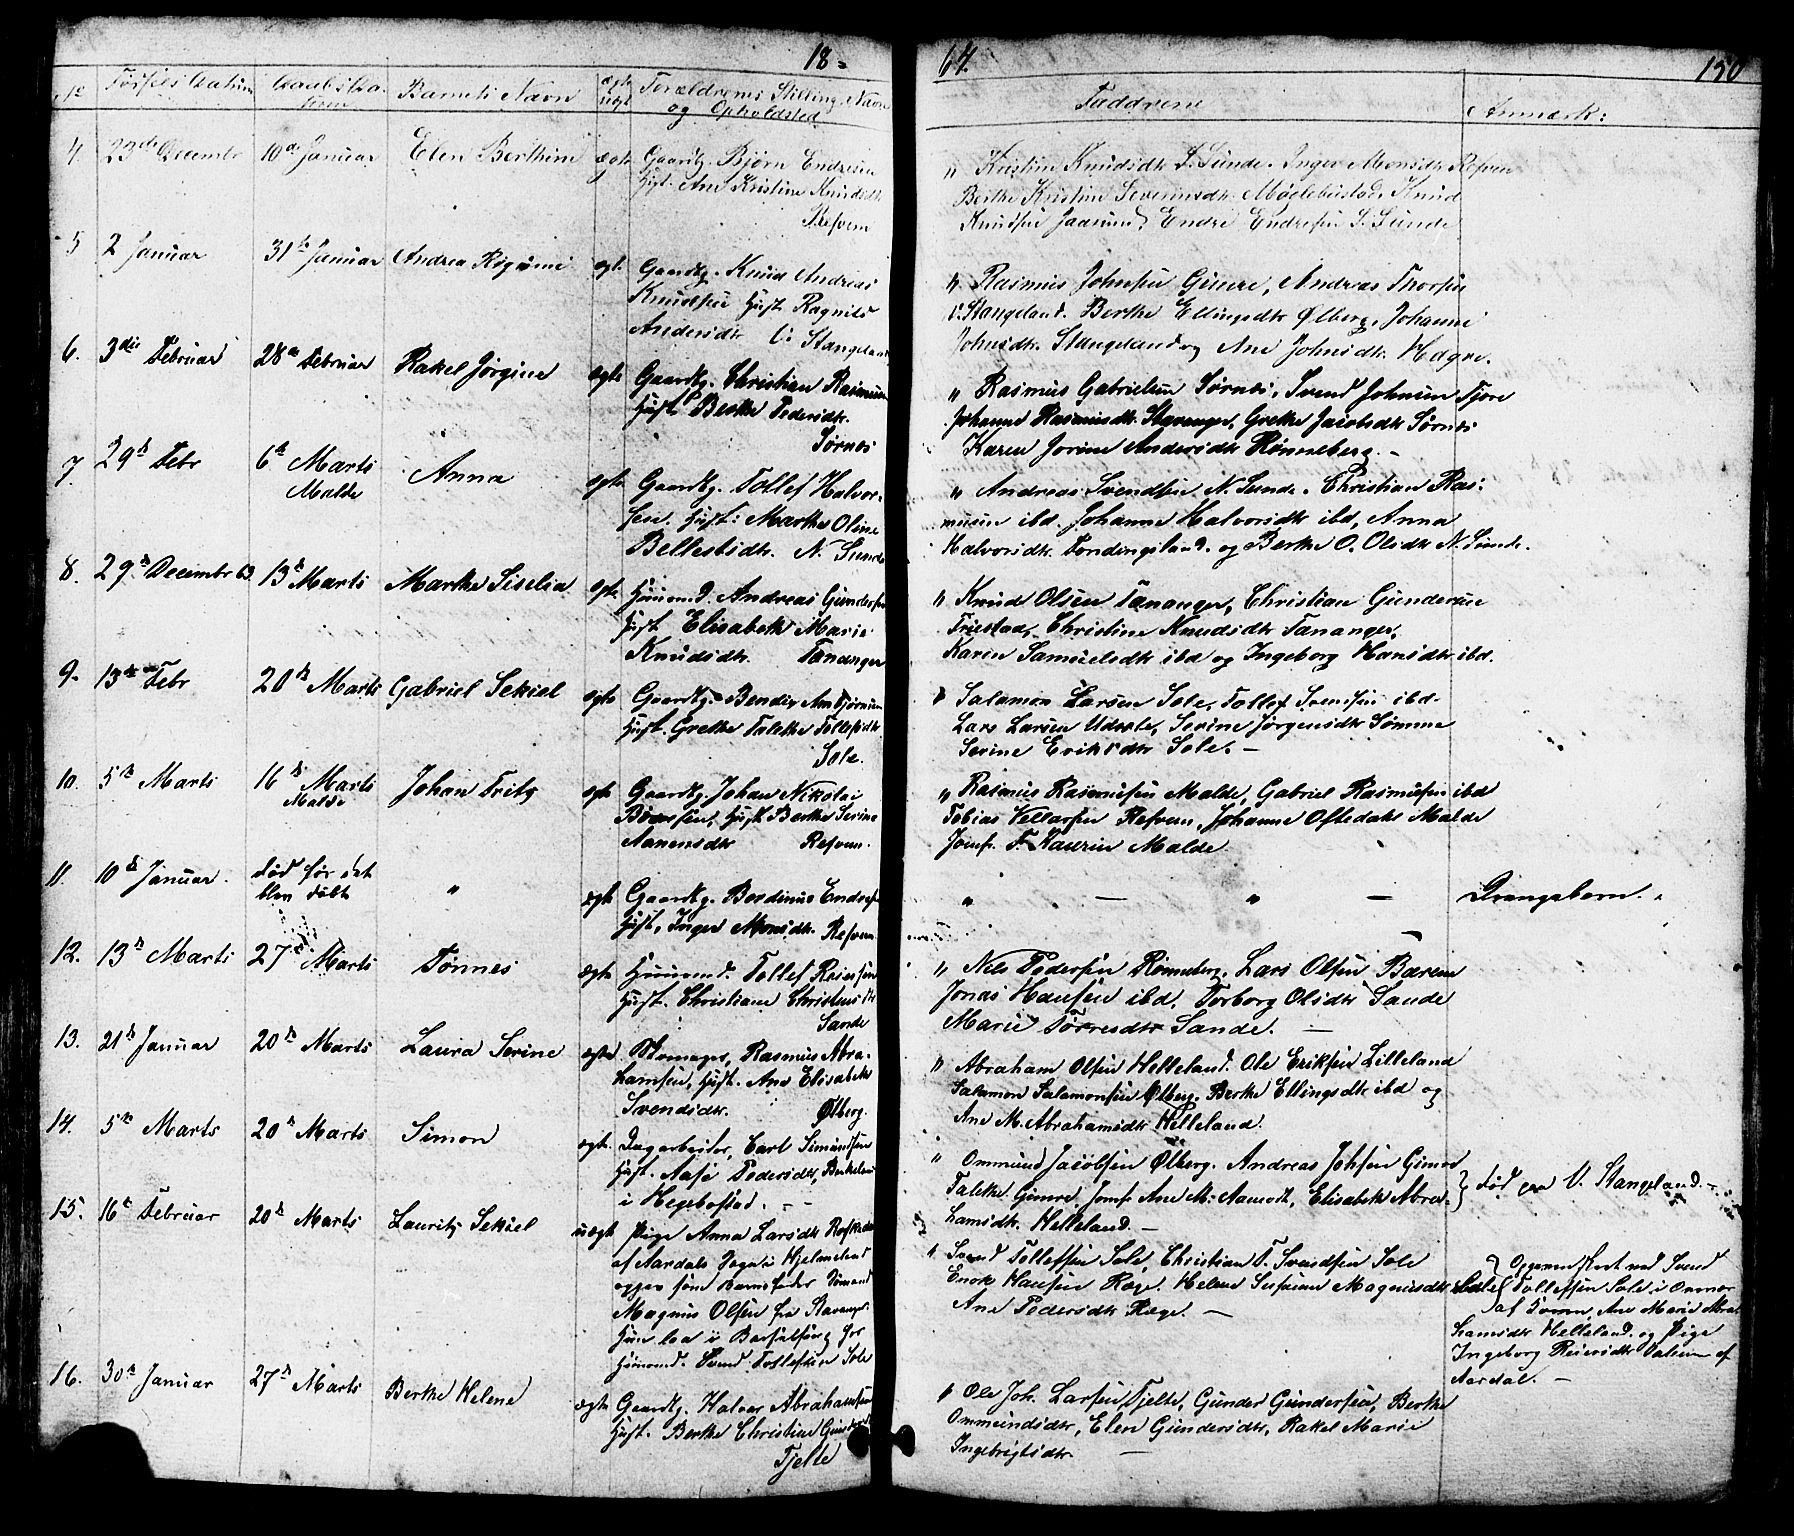 18
64.
150
No Fødsels Datum Daabs Datum Barnets Navn ægte uægt Forældrenes Stilling, Navn og Opholdssted Faddrene Anmærk:
4. 23de Decembr 10de Januar Elen Berthine ægte Gaardbg. Bjørn Endresen
Hust. Ane Kristine Knudsdtr
Refven
" Kristine Knudsdtr S. Sunde. Inger Monsdtr Refven
Berthe Kristine Severinsdtr Møglebustad, Knud
Knudsen Jaasund, Endre Endresen S. Sunde
5 2 Januar 31te Januar Andrea Regine ægt. Gaardbg. Knud Andreas
Knudsen Hust Ragnild
Andersdtr V. Stangeland
" Rasmus Johnsen Gimre, Andreas Thorsen
V. Stangeland. Berthe Ellingsdtr Ølberg, Johanne
Johnsdtr. Stangeland og Ane Johnsdtr. Hagre.
6. 3die Februar 28de Februar Rakel Jørgine ægte Gaardbg. Christian Rasmusen
Hust Berthe Pedersdtr.
Sørnes
" Rasmus Gabrielsen Sørnes, Svend Johnsen Tjore
Johanne Rasmusdtr. Stavanger, Grethe Jacobsdtr Sørnes
Karen Jorine Andersdtr Rønneberg. -
7. 29de Febr 6te Marts
Malde Anna ægte Gaardbg. Tollef Halvor-
sen. Hust: Marthe Oline
Bellestsdtr. N. Sunde
" Andreas Svendsen N. Sunde. Christian Ras-
musen ibd. Johanne Halvorsdtr ibd, Anna
Halvorsdtr. og Berthe O. Olsdtr N. Sunde.
8. 29de Decembr 63. 13de Marts Marthe Siselia ægte Huusmd. Andreas Gundersen
Hust Elisabeth Marie
Knudsdtr. Tananger
" Knud Olsen Tananger, Christian Gundersen
Friestad, Christine Knudsdtr Tananger,
Karen Samuelsdtr ibd og Ingeborg Hansdtr ibd.
9. 13de Febr 20de Marts Gabriel Sekiel ægte Gaardbg. Bendix Asbjørnsen
Hust. Grethe Talethe Tollefsdtr
Sole.
" Salamon Larsen Sole, Tollef Svensen ibd.
Lars Larsen Udsole, Serine Jørgensdtr Sømme
Serine Eriksdtr Sole. -
10. 5te Marts 16de Marts
Malde Johan Fritz ægte Gaardbg. Johan Nikolai
Børesen, Hust Berthe Serine
Aanensdtr Refven.
" Rasmus Rasmusen Malde, Gabriel Rasmusen ibd
Tobias Refven, Johanne Oftedahl Malde
Jomf. F. Kaurin Malde
11. 10de Januar. død før det
blev døbt " ægte Gaardbg. Berdinus Endresen
Hust, Inger Monsdtr. Refven.
" - " - Drengebarn.
12. 13de Marts 27de Marts Tønnes ægte Huusmd. Tollef Reiersen
Hust. Christiane Christensdtr
Sande
" Niels Pedersen Rønneberg, Lars Olsen Bærem
Jonas Hansen ibd. Torborg Olsdtr Sande
Marie Torresdtr Sande. -
13. 21de Januar 20de Marts Laura Serine ægte Skomager, Rasmus Abra-
hamsen, Hust. Ane Elisabeth
Svendsdtr. Ølberg.
" Abraham Olsen Helleland. Ole Eriksen Lilleland
Salomon Salomonsen Ølberg. Berthe Ellingsdtr ibd og
Ane M. Abrahamsdtr Helleland.
14. 5te Marts 20de Marts Simon ægte. Dagarbeider, Carl Simundsen
Hust. Aase Pedersdtr,
i Hegebostad. - -
" Ommund Jacobsen Ølberg. Andreas Johsen Gimre
Talethe Gimre, Jomf. Ane M. Aamodt, Elisabeth Abra-
hamsdtr. Helleland. -
} død paa V. Stangeland. -
15. 16de Februar 20de Marts Lauritz Sekiel uægte Pige Anna Larsdtr
af Aardals Sogn i Hjelmeland
opgav som Barnefader Sømand
Magnus Olsen fra Stavanger.
Hun laa i Barselseng hos
Huusmd. Svend Tollefsen Sole
" Svend Tollefsen Sole, Christian T. Svendsen Sole
Enok Hansen Ræge. Helene Susanne Magnusdtr Sole
Ane Pedersdtr Ræge. -
} Overeenskort ved Svend
Tollefsen Sole i Ommer
af Ane Marie Abra-
hamsdtr Helleland. og Pige
Ingeborg Reiersdtr af
Aardal. -
16. 30te Januar 27de Marts Berthe Helene ægte Gaardbg. Halvor Abrahamsen
Hust. Berthe Christine Gundersdtr
Tjelte
" Ole Joh. Larsen Tjelte, Gunder Gundersen, Berthe
Ommundsdtr, Elen Gundersdtr, Rakel Marie
Ingebrigtsdtr. -